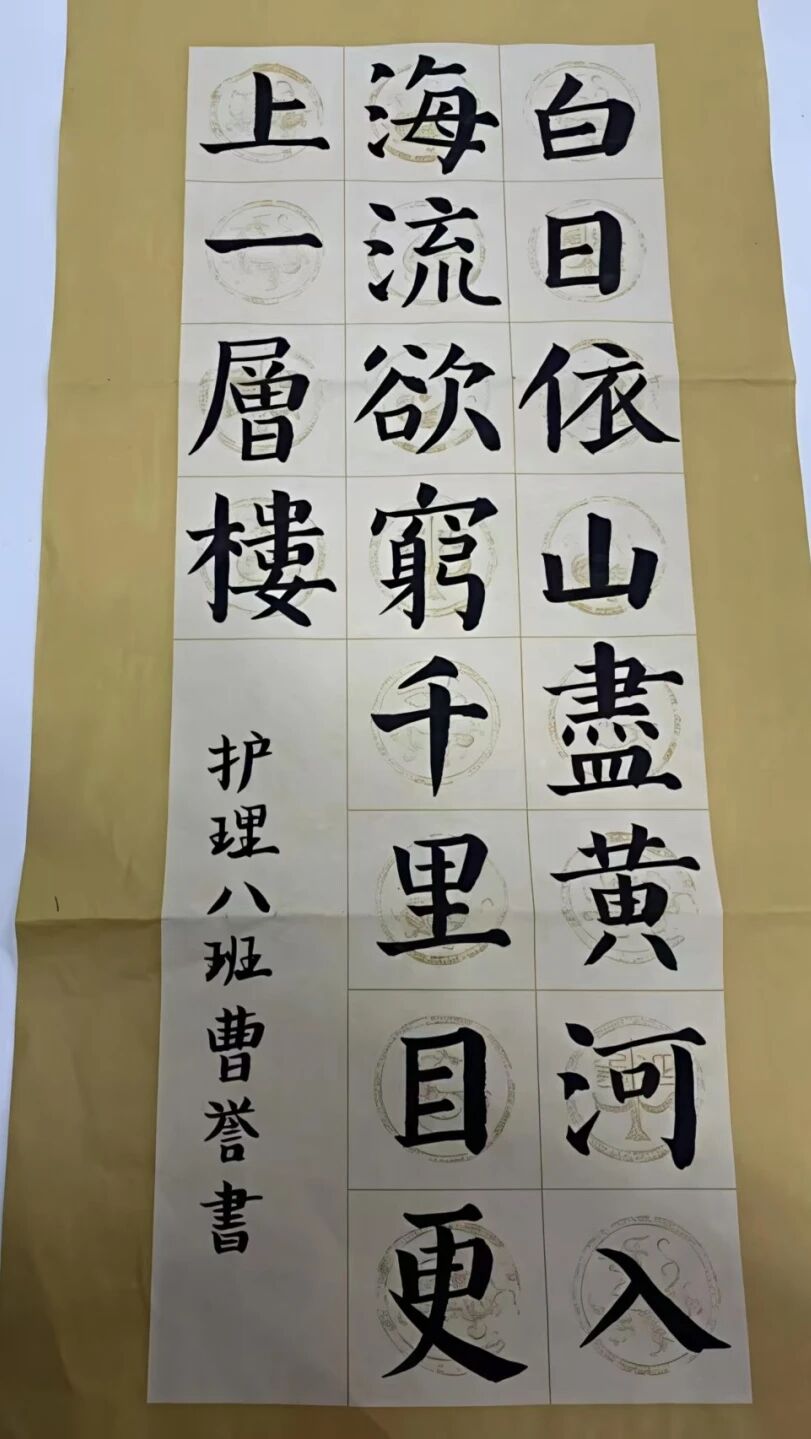 白日依山盡黄河入
海流欲窮千里目更
上一層樓
护理八班曹誉書